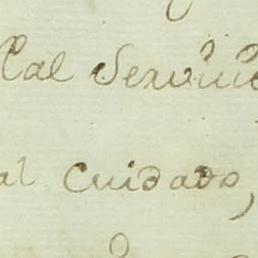 Cal Servicio
al Cuidado,